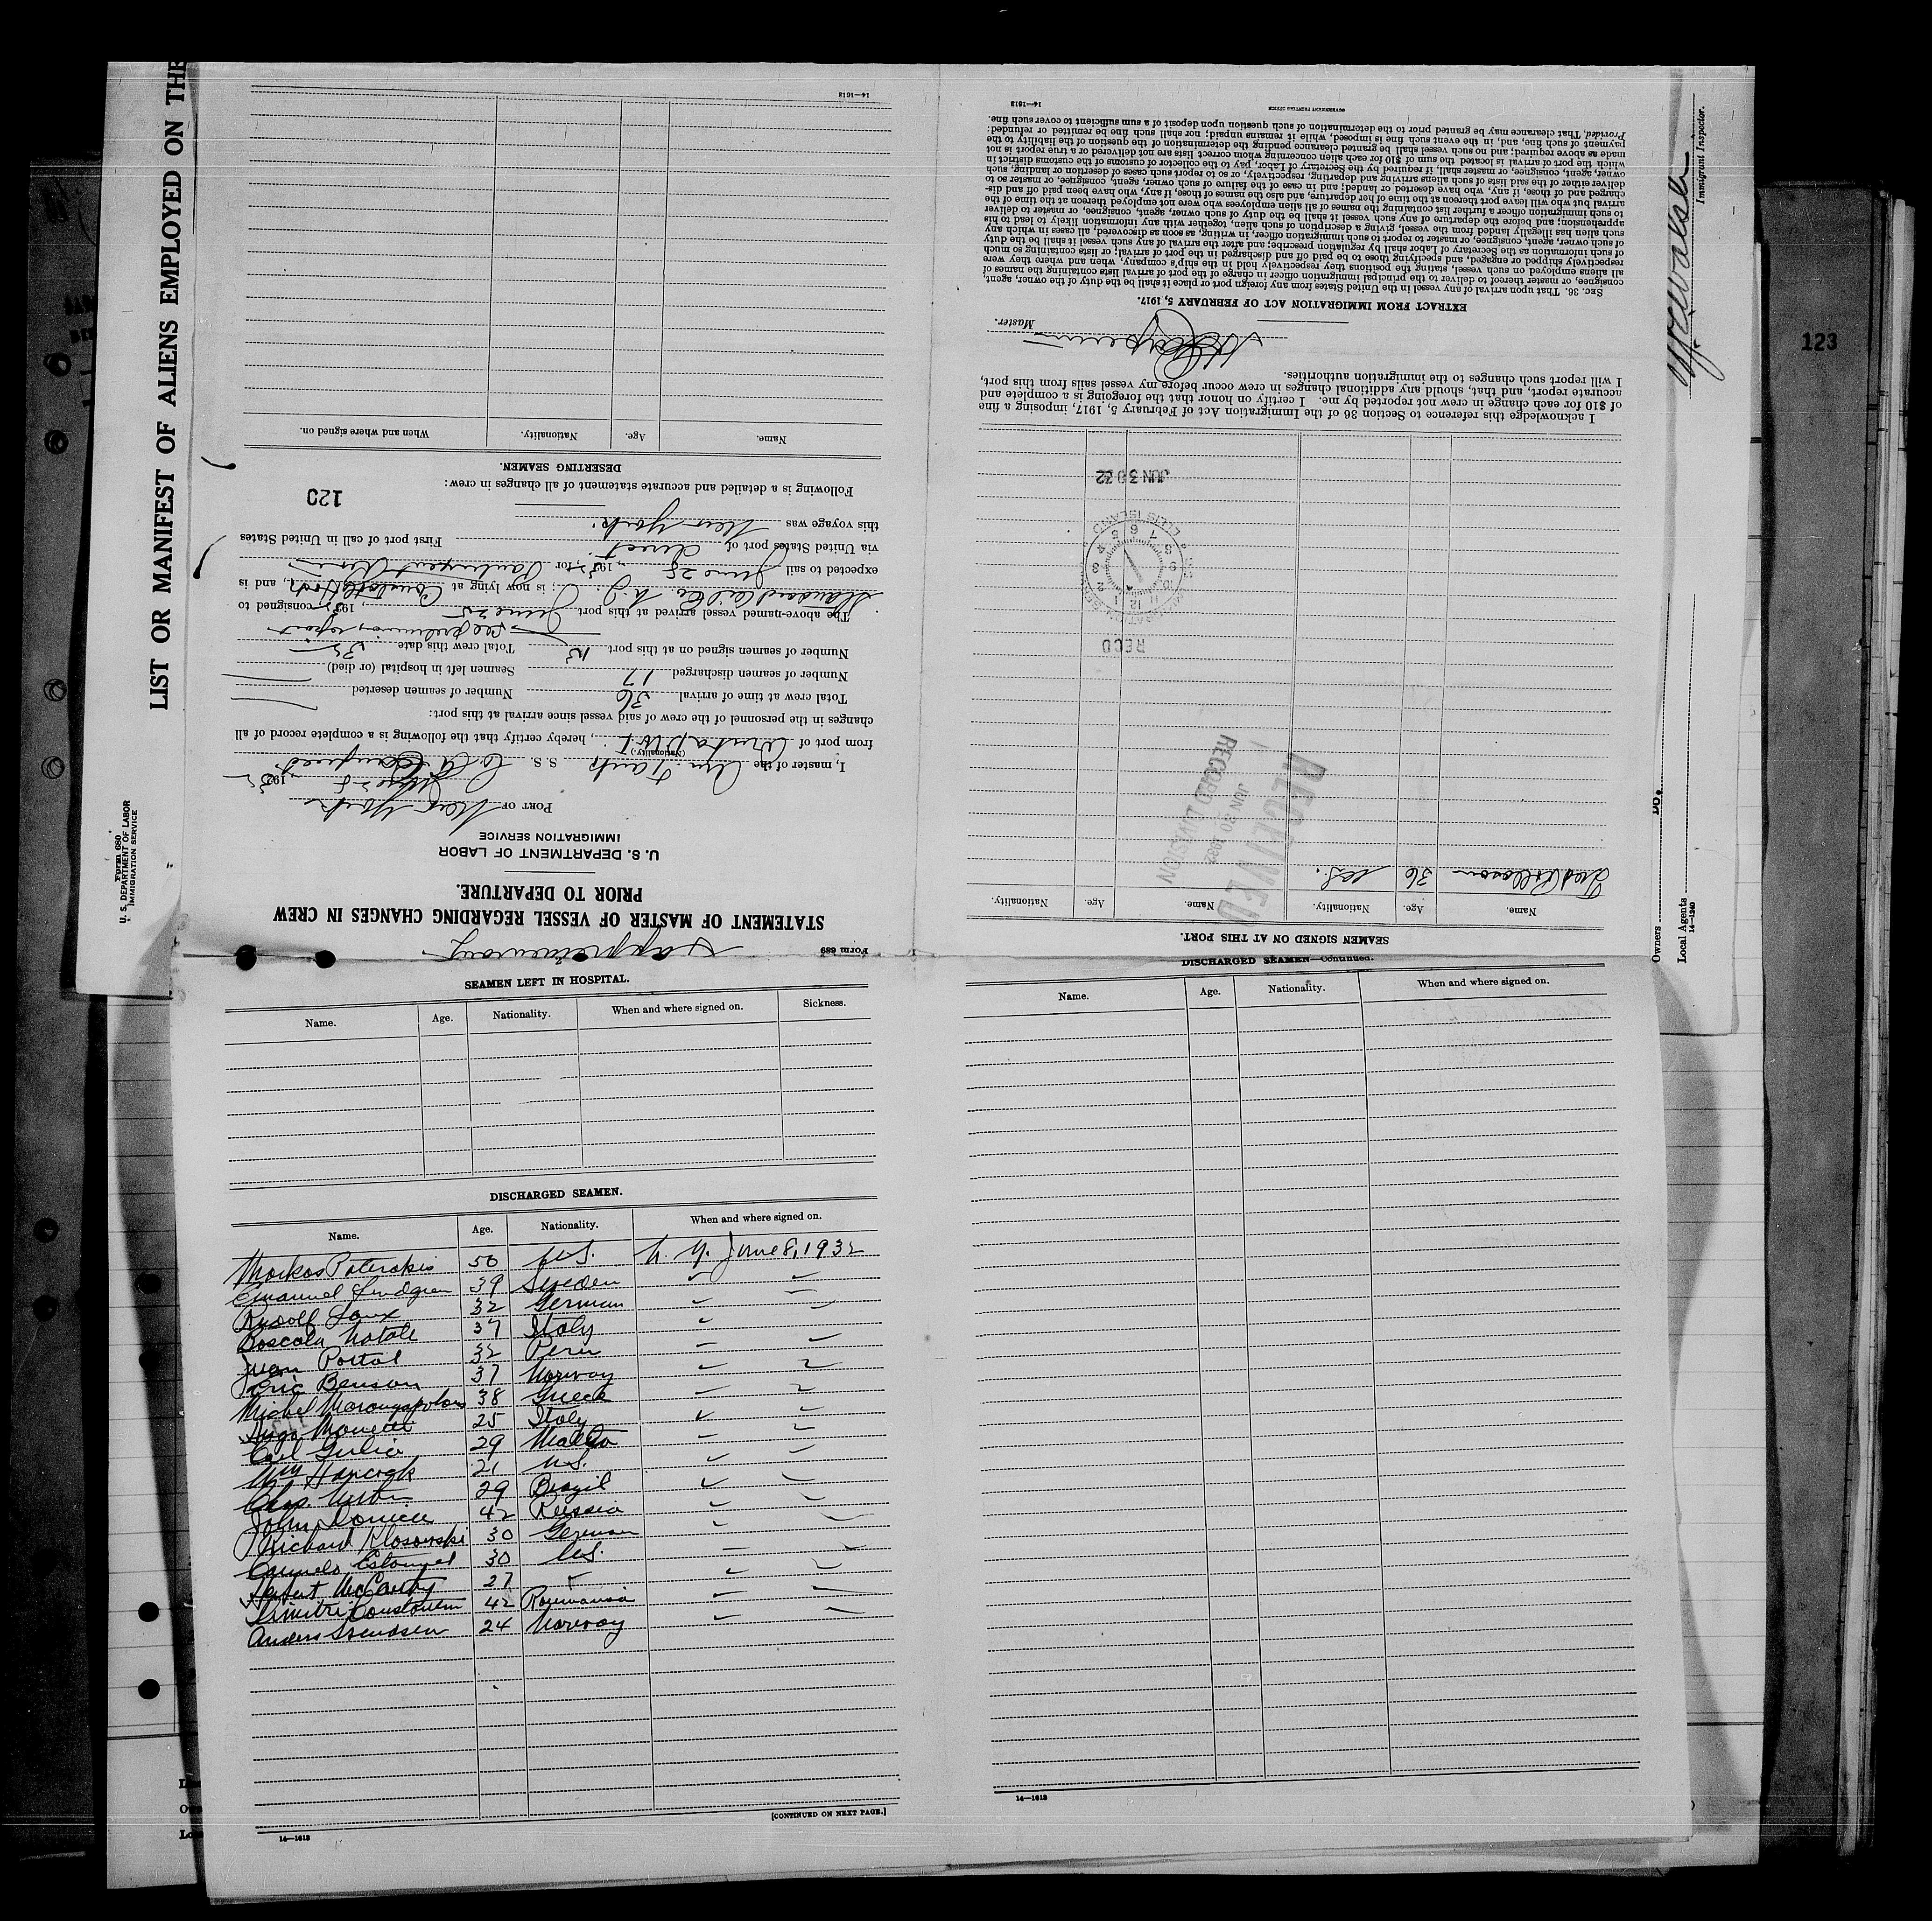 LIST OR MANIFEST OF ALIENS EMPLOYED ON THE
Form 680
U. S. DEPARTMENT OF LABOR
IMMIGRATION SERVICE
Form 689
STATEMENT OF MASTER OF VESSEL REGARDING CHANGES IN CREW
PRIOR TO DEPARTURE.
U. S. DEPARTMENT OF LABOR
IMMIGRATION SERVICE
PORT OF New York
, 1932
I, master of the Am. Tank S. S.
(Nationality.)
from port of Aruba DWI, hereby certify that the following is a complete record of all
changes in the personnel of the crew of said vessel since arrival at this port:
Total crew at time of arrival 36 Number of seamen deserted
Number of seamen discharged 17 Seamen left in hospital (or died)
Number of seamen signed on at this port Total crew this date
see preliminary report
The above-named vessel arrived at this port June 25, 1932, consigned to
Standard Oil Co. N.J.; is now lying at Hook, and is
expected to sail June 28, 1932, for
via United States port of direct. First port of call in United States
this voyage was New York.
Following is a detailed and accurate statement of all changes in crew:
120
DESERTING SEAMEN.
Name. Age. Nationality. When and where signed on.
14—1613
SEAMEN LEFT IN HOSPITAL.
Name. Age. Nationality. When and where signed on. Sickness.
DISCHARGED SEAMEN.
Name. Age. Nationality. When and where signed on.
Markos Paterakis 50 U.S. N. Y. June 8, 1932
Emanuel Lindgren 39 Sweden
Rudolf Laux 32 German
Boscola Natale 37 Italy
Juan Portal 32 Peru
Eric Benson 37 Norway
Michel 38 Greek
25 Italy
Carl 29 Malta
Wm Hancock 21 U.S.
Chas. 29 Brazil
John 42 Russia
Richard Klosowski 30 German
Carmelo 30 U.S.
McCarthy 27
Dimitri Constantin 42 Roumania
Anders Svendsen 24 Norway
[CONTINUED ON NEXT PAGE.]
14—1613
DISCHARGED SEAMEN—Continued.
Name. Age. Nationality. When and where signed on.
14—1613
SEAMEN SIGNED ON AT THIS PORT.
Name. Age. Nationality. Name. Age. Nationality.
36 U.S.
RECEIVED
JUN 30 1932
RECORD DIVISION
RECD
IMMIGRATION SERVICE
ELLIS ISLAND
12 1 2 3 4 5 6 7 8 9 10 11
JUN 30 32
I acknowledge this reference to Section 36 of the Immigration Act of February 5, 1917, imposing a fine
of $10 for each change in crew not reported by me. I certify on honor that the foregoing is a complete and
accurate report, and that, should any additional changes in crew occur before my vessel sails from this port,
I will report such changes to the immigration authorities.
Master.
EXTRACT FROM IMMIGRATION ACT OF FEBRUARY 5, 1917.
SEC. 36. That upon arrival of any vessel in the United States from any foreign port or place it shall be the duty of the owner, agent,
consignee, or master thereof to deliver to the principal immigration officer in charge of the port of arrival lists containing the names of
all aliens employed on such vessel, stating the positions they respectively hold in the ship's company, when and where they were
respectively shipped or engaged, and specifying those to be paid off and discharged in the port of arrival; or lists containing so much
of such information as the Secretary of Labor shall by regulation prescribe; and after the arrival of any such vessel it shall be the duty
of such owner, agent, consignee, or master to report to such immigration officer, in writing, as soon as discovered, all cases in which any
such alien has illegally landed from the vessel, giving a description of such alien, together with any information likely to lead to his
apprehension; and before the departure of any such vessel it shall be the duty of such owner, agent, consignee, or master to deliver
to such immigration officer a further list containing the names of all alien employees who were not employed thereon at the time of the
arrival but who will leave port thereon at the time of her departure, and also the names of those, if any, who have been paid off and dis-
charged and of those, if any, who have deserted or landed; and in case of the failure of such owner, agent, consignee, or master so to
deliver either of the said lists of such aliens arriving and departing, respectively, or so to report such cases of desertion or landing, such
owner, agent, consignee, or master shall, if required by the Secretary of Labor, pay to the collector of customs of the customs district in
which the port of arrival is located the sum of $10 for each alien concerning whom correct lists are not delivered or a true report is not
made as above required; and no such vessel shall be granted clearance pending the determination of the question of the liability to the
payment of such fine, and, in the event such fine is imposed, while it remains unpaid; nor shall such fine be remitted or refunded:
Provided, That clearance may be granted prior to the determination of such question upon deposit of a sum sufficient to cover such fine.
GOVERNMENT PRINTING OFFICE
14—1613
Immigrant Inspector.
Do.
Owners
Local Agents
14—1240
123